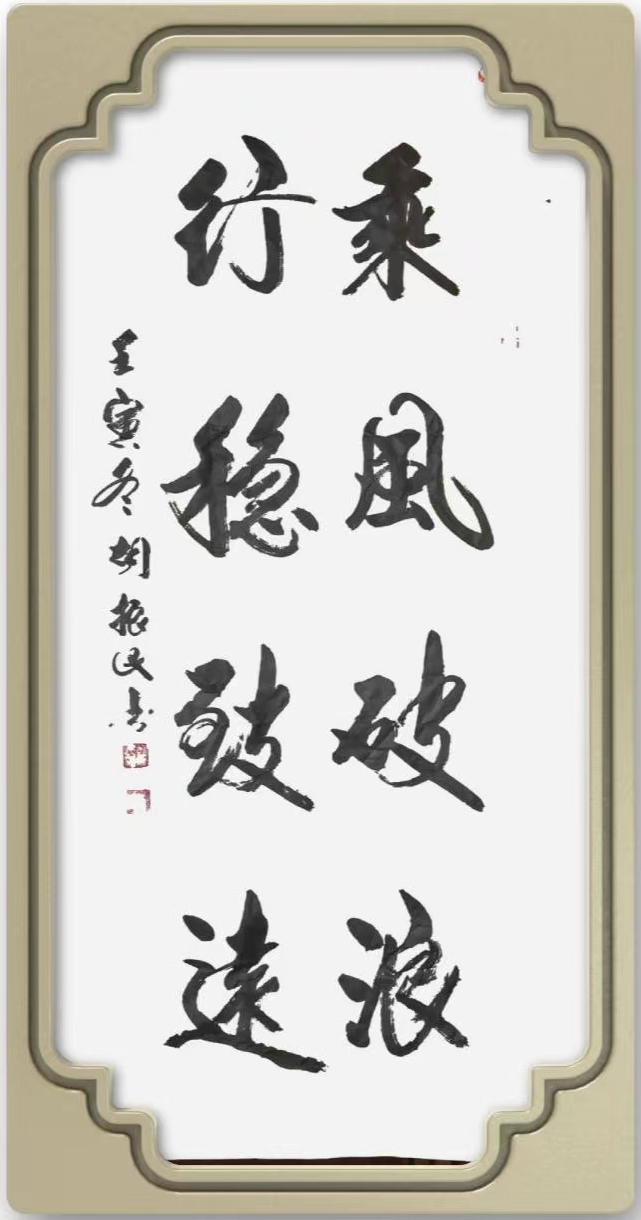 乘風破浪
行稳致遠
壬寅冬胡振民书